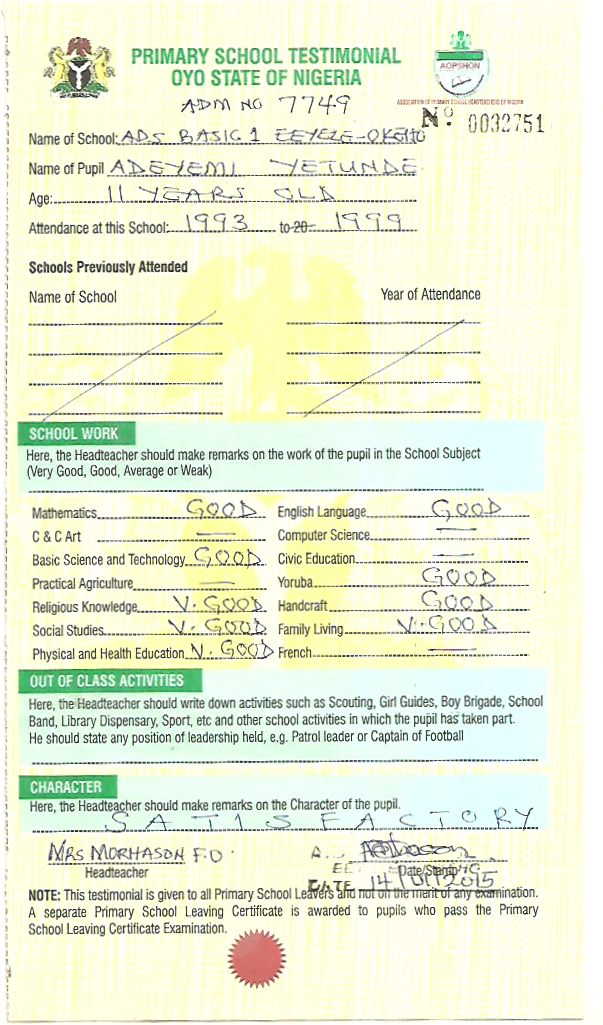 PRIMARY SCHOOL TESTIMONIAL
OYO STATE OF NIGERIA
AOPSHON
ASSOCIATION OF PRIMARY SCHOOL HEADTEACHERS OF NIGERIA
ADM NO 7749
No. 0032751
Name of School: ADS BASIC 1 EEYELE-OKEITO
Name of Pupil ADEYEMI YETUNDE
Age: 11 YEARS OLD
Attendance at this School: 1993 to 20 1999
Schools Previously Attended
Name of School Year of Attendance
SCHOOL WORK
Here, the Headteacher should make remarks on the work of the pupil in the School Subject
(Very Good, Good, Average or Weak)
Mathematics GOOD English Language GOOD
C & C Art — Computer Science —
Basic Science and Technology GOOD Civic Education —
Practical Agriculture — Yoruba GOOD
Religious Knowledge V. GOOD Handcraft GOOD
Social Studies V. GOOD Family Living V. GOOD
Physical and Health Education V. GOOD French —
OUT OF CLASS ACTIVITIES
Here, the Headteacher should write down activities such as Scouting, Girl Guides, Boy Brigade, School
Band, Library Dispensary, Sport, etc and other school activities in which the pupil has taken part.
He should state any position of leadership held, e.g. Patrol leader or Captain of Football
CHARACTER
Here, the Headteacher should make remarks on the Character of the pupil.
SATISFACTORY
MRS MORHASON F.O.
Headteacher Date/Stamp
DATE 14/01/2015
NOTE: This testimonial is given to all Primary School Leavers and not on the merit of any examination.
A separate Primary School Leaving Certificate is awarded to pupils who pass the Primary
School Leaving Certificate Examination.